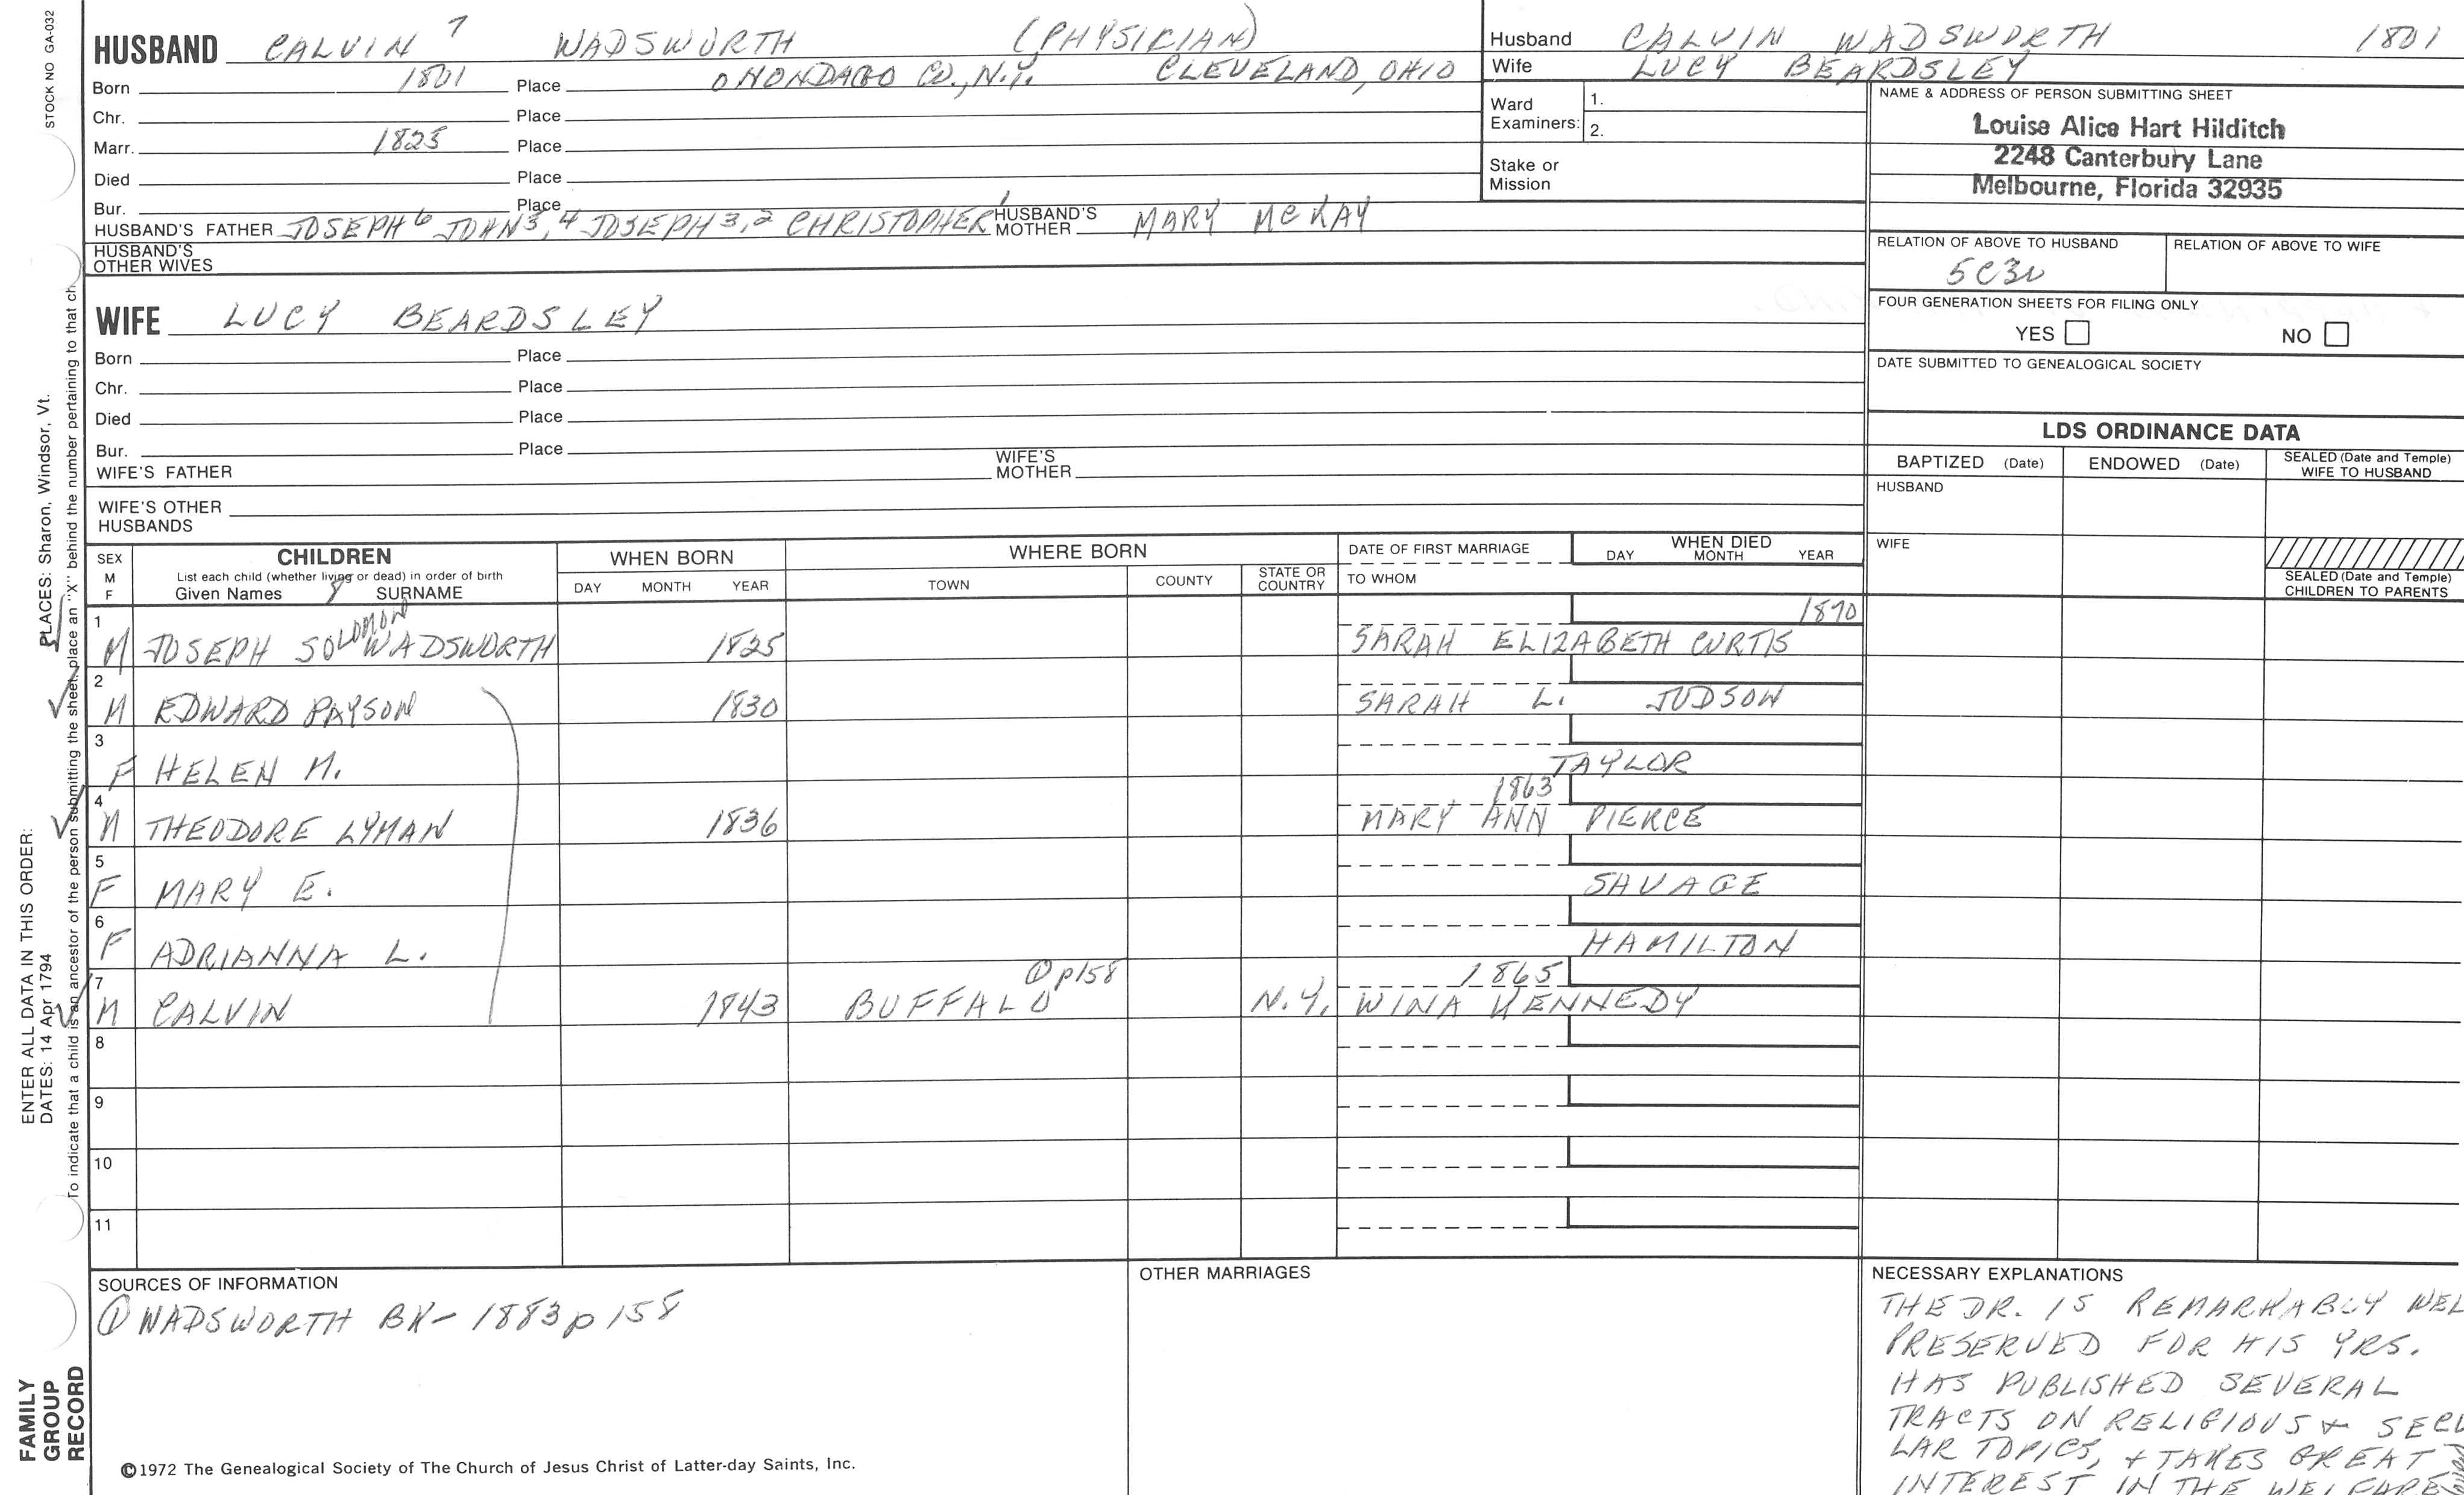 STOCK NO GA-032
HUSBAND CALVIN 7 WADSWORTH (PHYSICIAN)
Born 1801 Place ONONDAGO CO., N.Y. CLEVELAND, OHIO
Chr. Place
Marr. 1825 Place
Died Place
Bur. Place
HUSBAND'S FATHER JOSEPH 6 JOHN 5,4 JOSEPH 3,2 CHRISTOPHER 1 HUSBAND'S MOTHER MARY McKAY
HUSBAND'S OTHER WIVES
WIFE LUCY BEARDSLEY
Born Place
Chr. Place
Died Place
Bur. Place
WIFE'S FATHER WIFE'S MOTHER
WIFE'S OTHER HUSBANDS
Husband CALVIN WADSWORTH 1801
Wife LUCY BEARDSLEY
Ward Examiners: 1.
2.
Stake or Mission
NAME & ADDRESS OF PERSON SUBMITTING SHEET
Louise Alice Hart Hilditch
2248 Canterbury Lane
Melbourne, Florida 32935
RELATION OF ABOVE TO HUSBAND RELATION OF ABOVE TO WIFE
5C3R
FOUR GENERATION SHEETS FOR FILING ONLY
YES NO
DATE SUBMITTED TO GENEALOGICAL SOCIETY
LDS ORDINANCE DATA
BAPTIZED (Date) ENDOWED (Date) SEALED (Date and Temple) WIFE TO HUSBAND
HUSBAND
WIFE
SEALED (Date and Temple) CHILDREN TO PARENTS
SEX M F CHILDREN WHEN BORN WHERE BORN DATE OF FIRST MARRIAGE WHEN DIED
List each child (whether living or dead) in order of birth
Given Names 8 SURNAME DAY MONTH YEAR TOWN COUNTY STATE OR COUNTRY TO WHOM DAY MONTH YEAR
1 1870
M JOSEPH SOLOMON WADSWORTH 1825 SARAH ELIZABETH CURTIS
2
M EDWARD PAYSON 1830 SARAH L. JUDSON
3
F HELEN M. TAYLOR
4 1863
M THEODORE LYMAN 1836 MARY ANN PIERCE
5
F MARY E. SAVAGE
6
F ADRIANNA L. HAMILTON
7 ① p158 1865
M CALVIN 1843 BUFFALO N.Y. WINA KENNEDY
8
9
10
11
SOURCES OF INFORMATION
① WADSWORTH BK- 1883 p 158
OTHER MARRIAGES
NECESSARY EXPLANATIONS
THE DR. IS REMARKABLY WEL
PRESERVED FOR HIS YRS.
HAS PUBLISHED SEVERAL
TRACTS ON RELIGIOUS & SECU
LAR TOPICS, & TAKES GREAT
INTEREST IN THE WELFARE
©1972 The Genealogical Society of The Church of Jesus Christ of Latter-day Saints, Inc.
ENTER ALL DATA IN THIS ORDER:
DATES: 14 Apr 1794 PLACES: Sharon, Windsor, Vt.
To indicate that a child is an ancestor of the person submitting the sheet, place an "X" behind the number pertaining to that ch
FAMILY
GROUP
RECORD